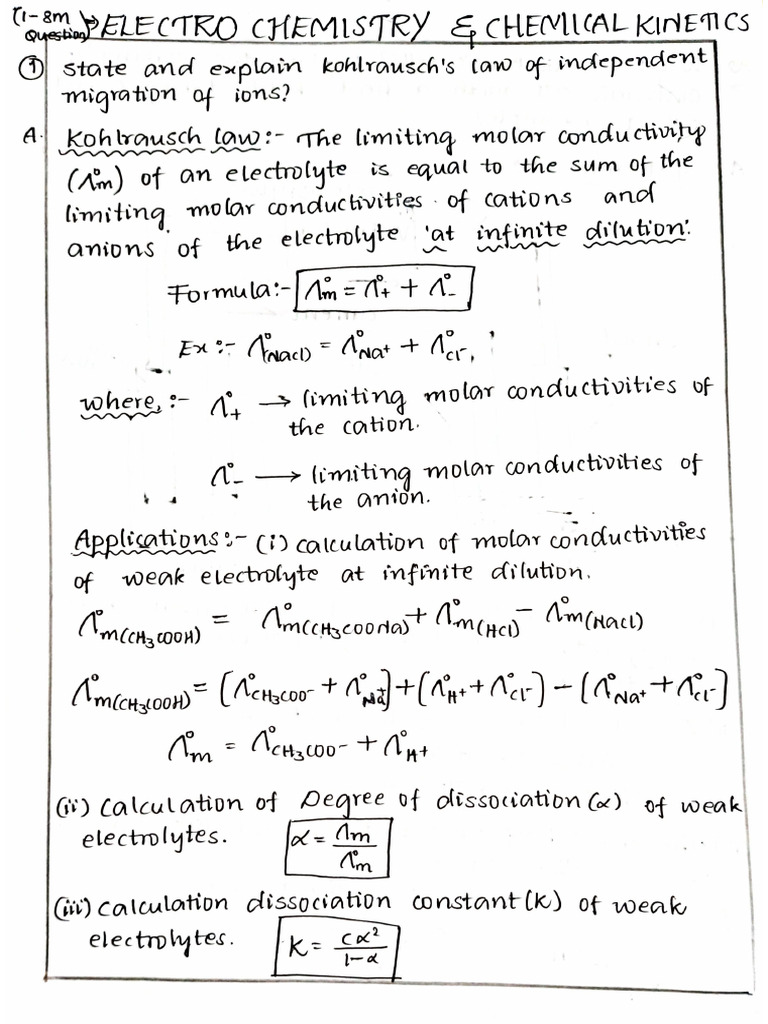 (1-8m Question) → ELECTRO CHEMISTRY & CHEMICAL KINETICS
① State and explain Kohlrausch's law of independent
migration of ions?
A. Kohlrausch law:- The limiting molar conductivity
(Λ°m) of an electrolyte is equal to the sum of the
limiting molar conductivities of cations and
anions of the electrolyte 'at infinite dilution'.
Formula:- Λ°m = Λ°+ + Λ°-
Ex:- Λ°(NaCl) = Λ°Na+ + Λ°Cl-,
where,:- Λ°+ → limiting molar conductivities of
the cation.
Λ°- → limiting molar conductivities of
the anion.
Applications:- (i) calculation of molar conductivities
of weak electrolyte at infinite dilution.
Λ°m(CH3COOH) = Λ°m(CH3COONa) + Λ°m(HCl) - Λ°m(NaCl)
Λ°m(CH3COOH) = [Λ°CH3COO- + Λ°Na+] + (Λ°H+ + Λ°Cl-) - (Λ°Na+ + Λ°Cl-)
Λ°m = Λ°CH3COO- + Λ°H+
(ii) Calculation of Degree of dissociation (α) of weak
electrolytes. α = Λm / Λ°m
(iii) Calculation dissociation constant (K) of weak
electrolytes. K = Cα² / 1-α